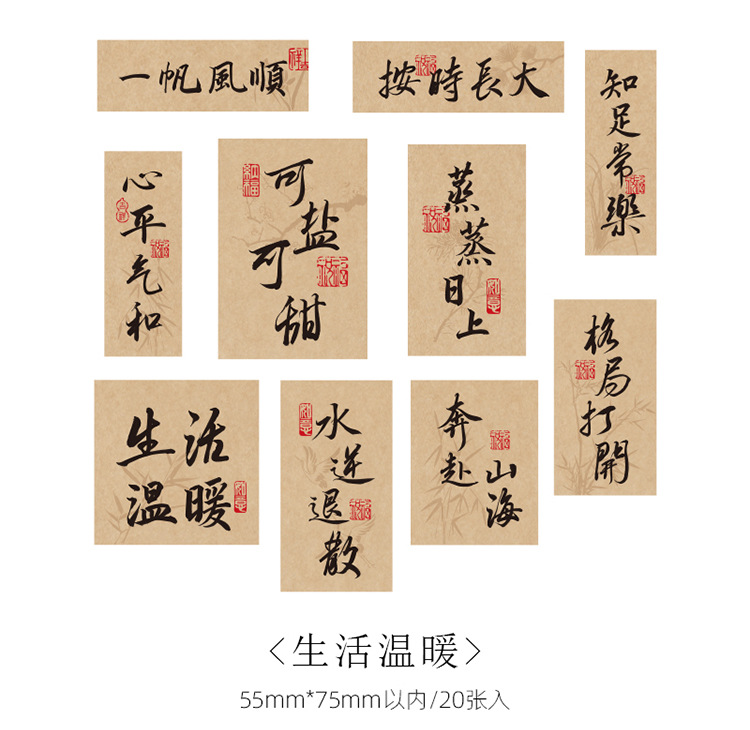 一帆風順
按時長大
知足常樂
心平气和
可盐
可甜
蒸蒸日上
格局打開
生活
温暖
水逆退散
奔赴
山海
納福
<生活温暖>
55mm*75mm以内/20张入